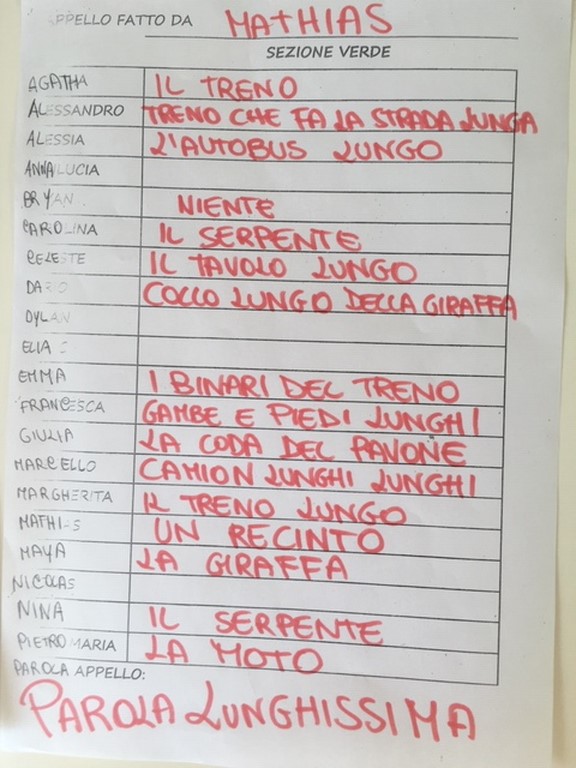 APPELLO FATTO DA MATHIAS
SEZIONE VERDE
AGATHA IL TRENO
ALESSANDRO TRENO CHE FA LA STRADA LUNGA
ALESSIA L'AUTOBUS LUNGO
ANNALUCIA
BRYAN NIENTE
CAROLINA IL SERPENTE
CELESTE IL TAVOLO LUNGO
COLLO LUNGO DELLA GIRAFFA
DYLAN
ELIA
EMMA I BINARI DEL TRENO
FRANCESCA GAMBE E PIEDI LUNGHI
GIULIA LA CODA DEL PAVONE
MARCELLO CAMION LUNGHI LUNGHI
MARGHERITA IL TRENO LUNGO
MATHIAS UN RECINTO
MAYA LA GIRAFFA
NICOLAS
NINA IL SERPENTE
PIETRO MARIA LA MOTO
PAROLA APPELLO:
PAROLA LUNGHISSIMA